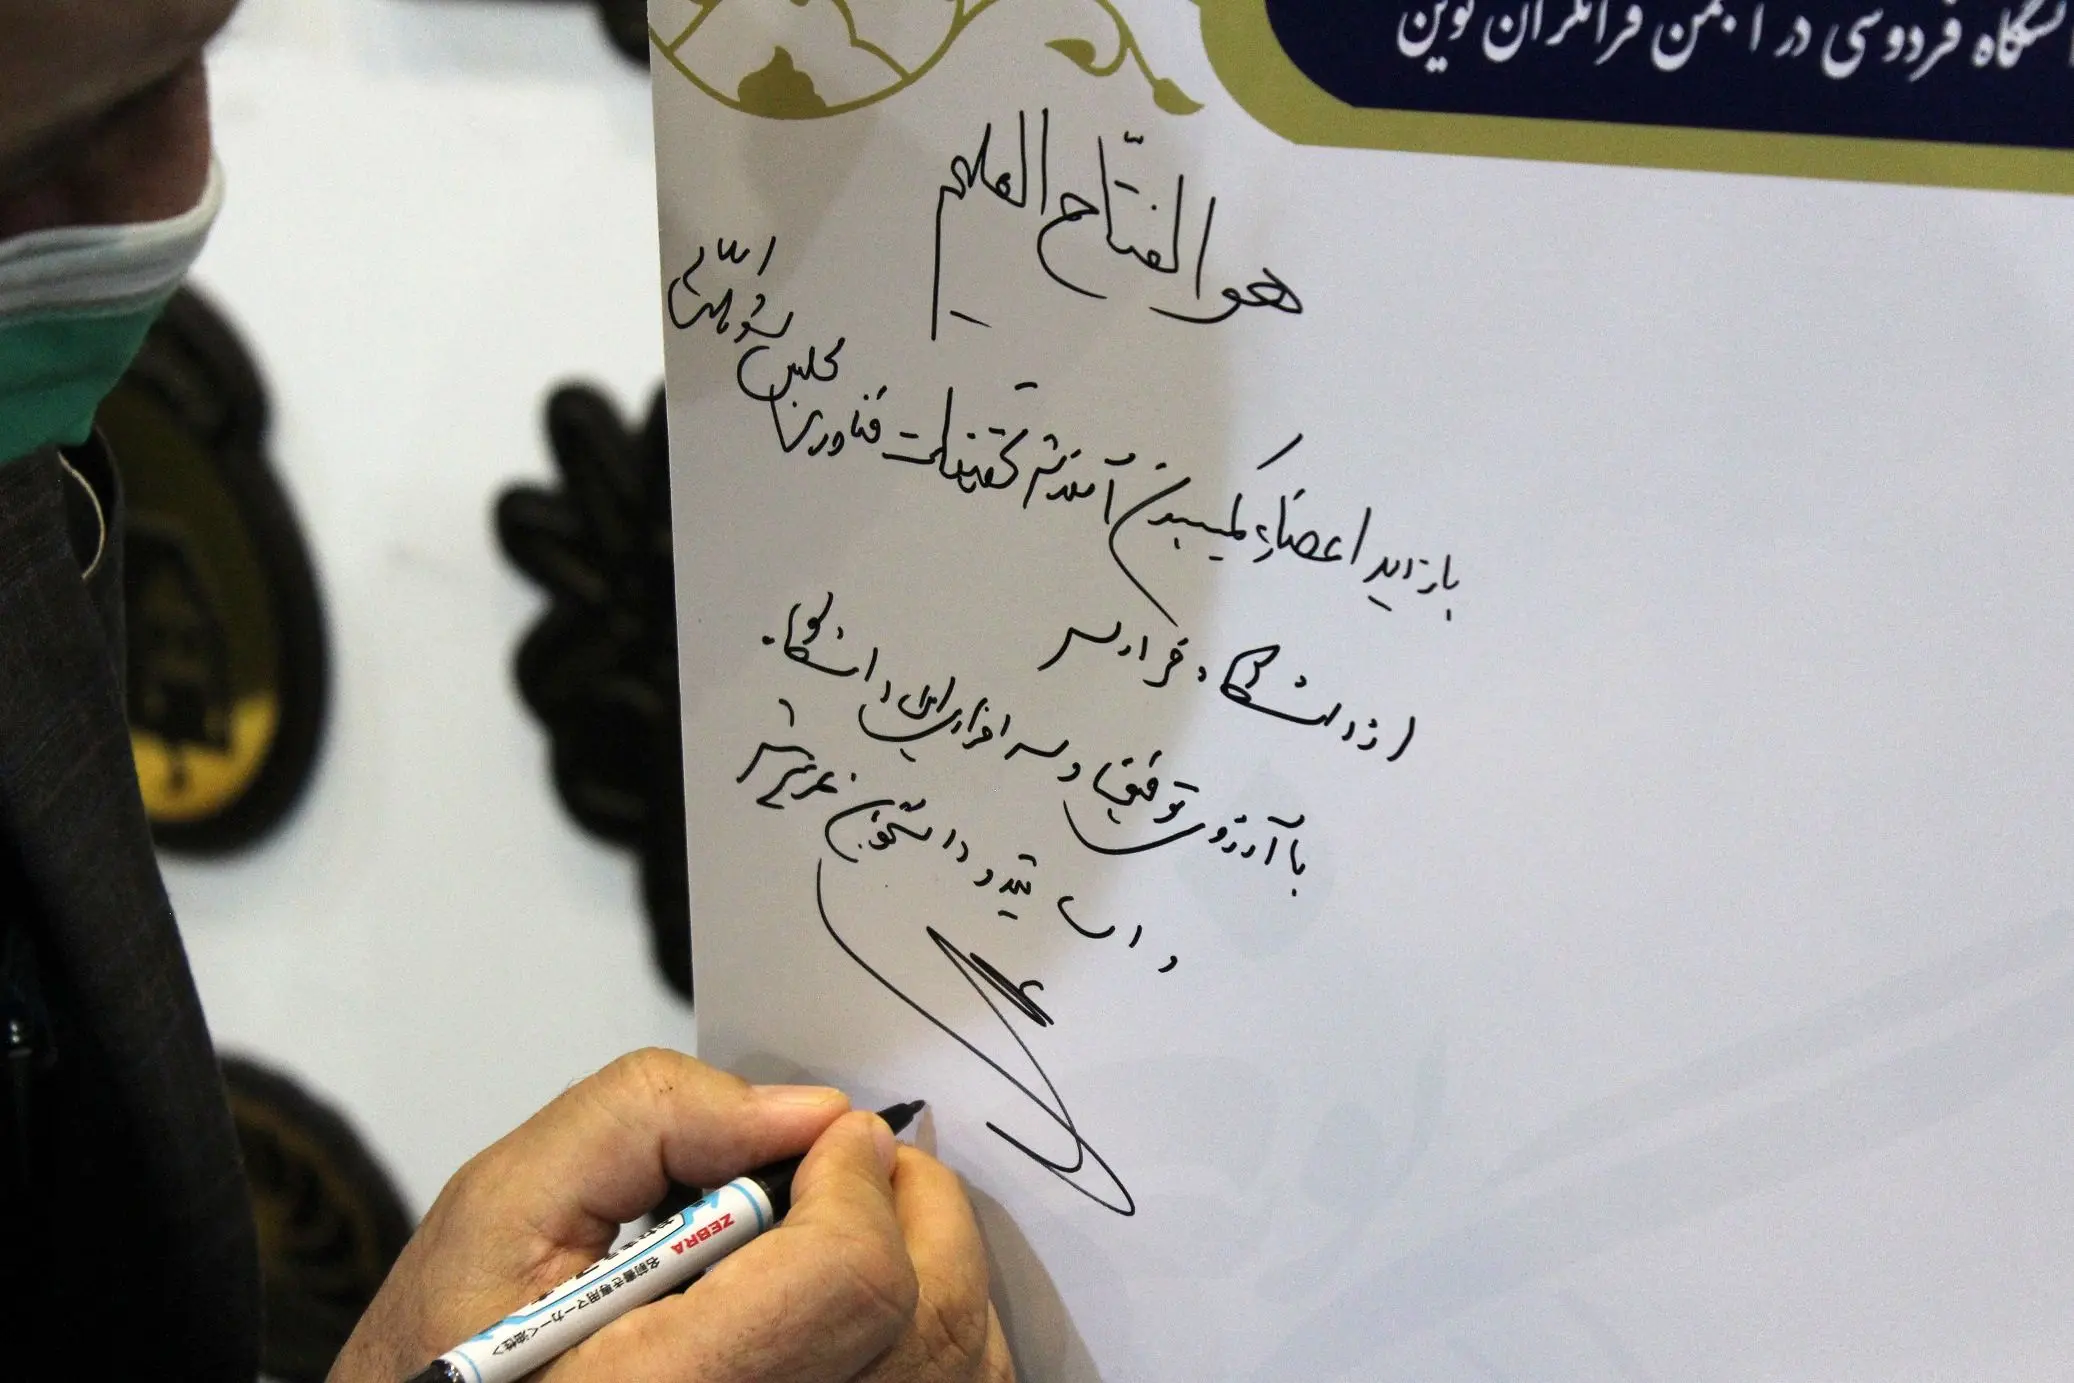 دانشگاه فردوسی در انجمن فرانگران نوین
هو الفتّاح العلیم
بازدید اعضاء کمیسیون آموزش تحقیقات فناوری مجلس شورای اسلامی
از دانشگاه فردوسی
با آرزوی توفیق و سرافرازی این دانشگاه
و اساتید و دانشجویان عزیزش
ZEBRA
名前書き専用マーカー〈油性〉